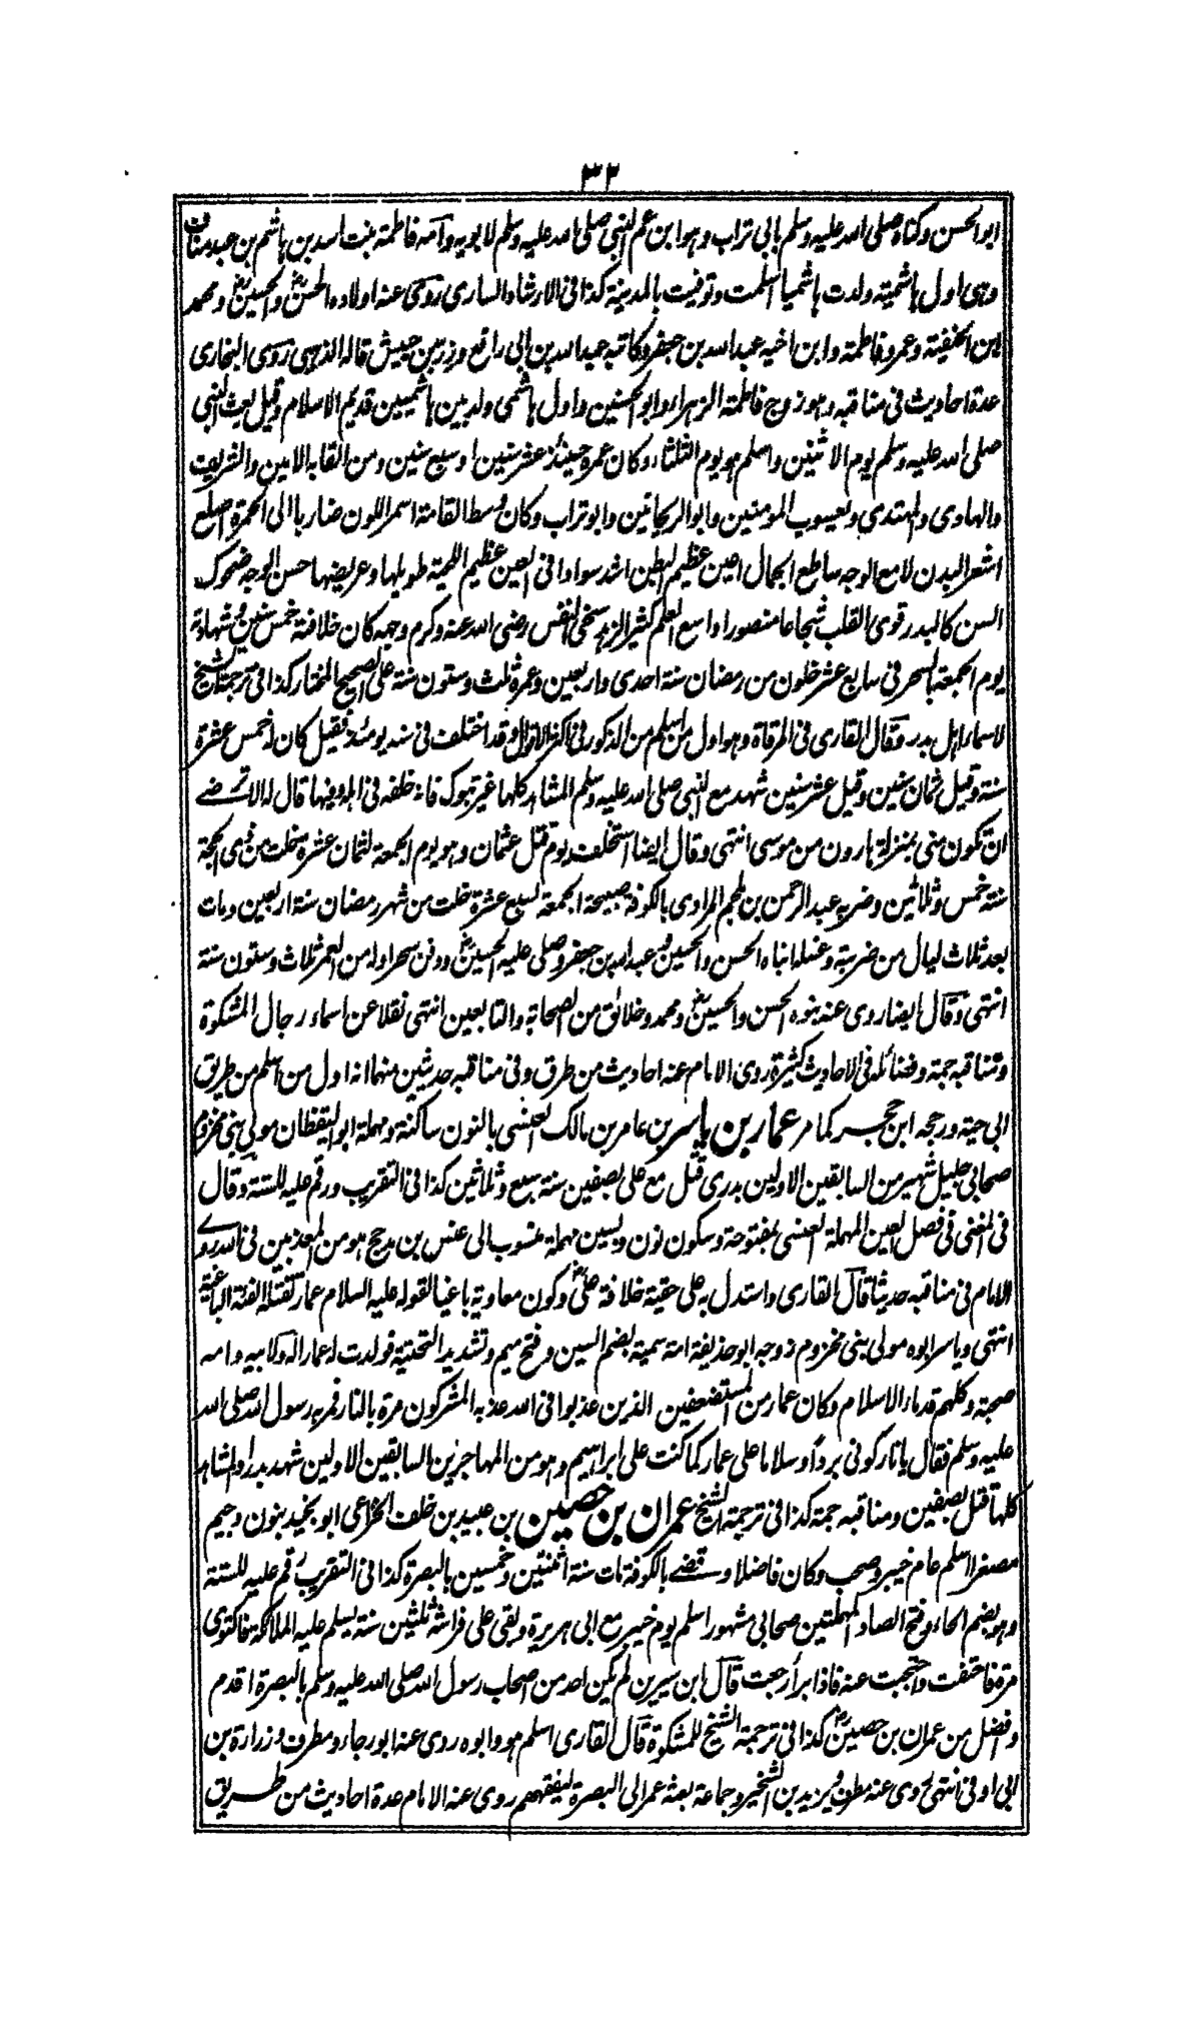 ٣٢
ابو الحسن وكناه صلى الله عليه وسلم بابى تراب وهو ابن عم النبى صلى الله عليه وسلم لابويه وامه فاطمة بنت اسد بن هاشم بن عبد مناف
وهى اول هاشمية ولدت هاشميا اسلمت وتوفيت بالمدينة كذا فى الارشاد السارى روى عنه اولاده الحسن والحسين ومحمد
ابن الحنفية وعمر وفاطمة وابن اخيه عبد الله بن جعفر وكاتبه عبيد الله بن ابى رافع وزر بن حبيش قاله الذهبى روى البخارى
عدة احاديث فى مناقبه وهو زوج فاطمة الزهراء وابو الحسنين واول هاشمى ولد بين هاشميين قديم الاسلام وقيل بعث النبى
صلى الله عليه وسلم يوم الاثنين واسلم هو يوم الثلثاء وكان عمره حينئذ عشر سنين او سبع سنين ومن القابه الامين والشريف
والهادى والمهتدى ويعسوب المومنين وابو الريحانتين وابو تراب وكان وسط القامة اسمر اللون ضاربا الى الحمرة اصلع
اشعر البدن لامع الوجه ساطع الجمال اعين عظيم البطن اشد سوادا فى العين عظيم اللحية طويلها وعريضها حسن الوجه ضحوك
السن كالبدر قوى القلب شجاعا منصورا واسع العلم كثير الزهد سخى النفس رضى الله عنه وكرم وجهه كان خلافته خمس سنين وشهادته
يوم الجمعة بالسحر فى سابع عشر خلون من رمضان سنة احدى واربعين وعمره ثلث وستون سنة على الصحيح المختار كذا فى ترجمة الشيخ
لاسماء اهل بدر وقال القارى فى المرقاة وهو اول من اسلم من الذكور فى اكثر الاقوال وقد اختلف فى سنه يومئذ فقيل كان له خمس عشرة
سنة وقيل ثمان سنين وقيل عشر سنين شهد مع النبى صلى الله عليه وسلم المشاهد كلها غير تبوك فانه خلفه فى اهله وفيها قال له الا ترضے
ان تكون منى بمنزلة هارون من موسى انتهى وقال ايضا استخلف يوم قتل عثمان وهو يوم الجمعة لثمان عشرة خلت من ذى الحجة
سنة خمس وثلاثين وضربه عبد الرحمن بن ملجم المرادى بالكوفة صبيحة الجمعة لسبع عشرة خلت من شهر رمضان سنة اربعين ومات
بعد ثلاث ليال من ضربته وغسله ابناه الحسن والحسين وعبد الله بن جعفر وصلى عليه الحسين ودفن سحرا وله من العمر ثلاث وستون سنة
انتهى وقال ايضا روى عنه بنوه الحسن والحسين ومحمد وخلائق من الصحابة والتابعين انتهى نقلا عن اسماء رجال المشكوة
ومناقبه جمة وفضائله فى الاحاديث كثيرة روى الامام عنه احاديث من طرق وفى مناقبه حديثين منها انه اول من اسلم من طريق
ابى حية ورجحه ابن حجر كما مر عمار بن ياسر بن عامر بن مالك العنسى بالنون ساكنة ومهملة ابو اليقظان مولى بنى مخزوم
صحابى جليل شهير من السابقين الاولين بدرى قتل مع على بصفين سنة سبع وثلاثين كذا فى التقريب ورقم عليه للستة وقال
فى المغنى فى فصل العين المهملة العنسى بمفتوحة وسكون نون وبسين مهملة منسوب الى عنس بن مدحج هو من المعذبين فى الله روے
الامام فى مناقبه حديثا قال القارى واستدل به على حقية خلافة على وكون معاوية باغيا لقوله عليه السلام عمار تقتله الفئة الباغية
انتهى وياسر ابوه مولى بنى مخزوم زوجه ابو حذيفة امته سمية بضم السين وفتح ميم وتشديد التحتية فولدت له عمارا له ولابيه وامه
صحبة وكلهم قدماء الاسلام وكان عمار من المستضعفين الذين عذبوا فى الله عذبه المشركون مرة بالنار فمر به رسول الله صلى الله
عليه وسلم فقال يا نار كونى بردا وسلاما على عمار كما كنت على ابراهيم وهو من المهاجرين السابقين الاولين شهد بدرا والمشاهد
كلها قتل بصفين ومناقبه جمة كذا فى ترجمة الشيخ عمران بن حصين بن عبيد بن خلف الخزاعى ابو نجيد بنون وجيم
مصغرا اسلم عام خيبر وصحب وكان فاضلا وقضے بالكوفة مات سنة اثنتين وخمسين بالبصرة كذا فى التقريب رقم عليه للستة
وهو بضم الحاء وفتح الصاد المهملتين صحابى مشهور اسلم يوم خيبر مع ابى هريرة وبقى على فراشه ثلثين سنة يسلم عليه الملائكة فاكتوى
مرة فاختفت واحتجبت عنه فاذا برأ رجعت قال ابن سيرين لم يكن احد من اصحاب رسول الله صلى الله عليه وسلم بالبصرة اقدم
وافضل من عمران بن حصين كذا فى ترجمة الشيخ للمشكوة قال القارى اسلم هو وابوه روى عنه ابو رجاء ومطرف وزرارة بن
ابى اوفى انتهى روى عنه مطرف ويزيد بن الشخير وجماعة بعثه عمر الى البصرة ليفقههم روى عنه الامام عدة احاديث من طريق